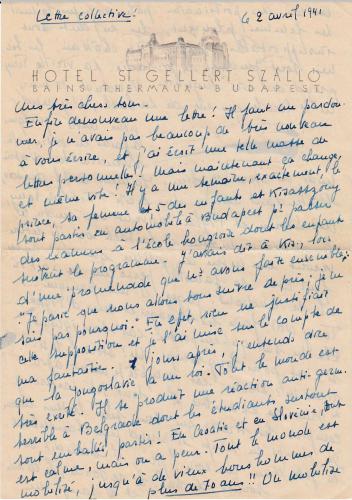 Lettre collective!
le 2 avril 1941
HOTEL ST GELLÉRT SZÁLLÓ
BAINS THERMAUX · BUDAPEST
Mes très chers tous.
Enfin de nouveau une lettre! Il faut me pardon-
ner, je n'avais pas beaucoup de très nouveau
à vous écrire, et j'ai écrit une telle masse de
lettres personnelles! Mais maintenant ça change,
et même vite! Il y a une semaine, exactement, le
prince, sa femme et 5 des enfants et Kisasszony
sont partis en automobile à Budapest pr passer
des examens à l'École hongroise dont les enfants
suivent le programme. J'avais dit à Kis., lors
d'une promenade que ns avons faite ensemble,:
"Je parie que nous allons vous suivre de près; je ne
sais pas pourquoi." En effet, rien ne justifiait
cette supposition et je l'ai mise sur le compte de
ma fantaisie. jours après, j'entends dire
que la Yougoslavie a un roi. Tout le monde est
très excité. Il se produit une réaction anti-germ.
terrible à Belgrade dont les étudiants surtout
sont emballés, partis! En Croatie et en Slovénie, tout
est calme, mais on a peur. Tout le monde est
mobilisé, jusqu'à de vieux bons hommes de
plus de 70 ans!! On mobilise